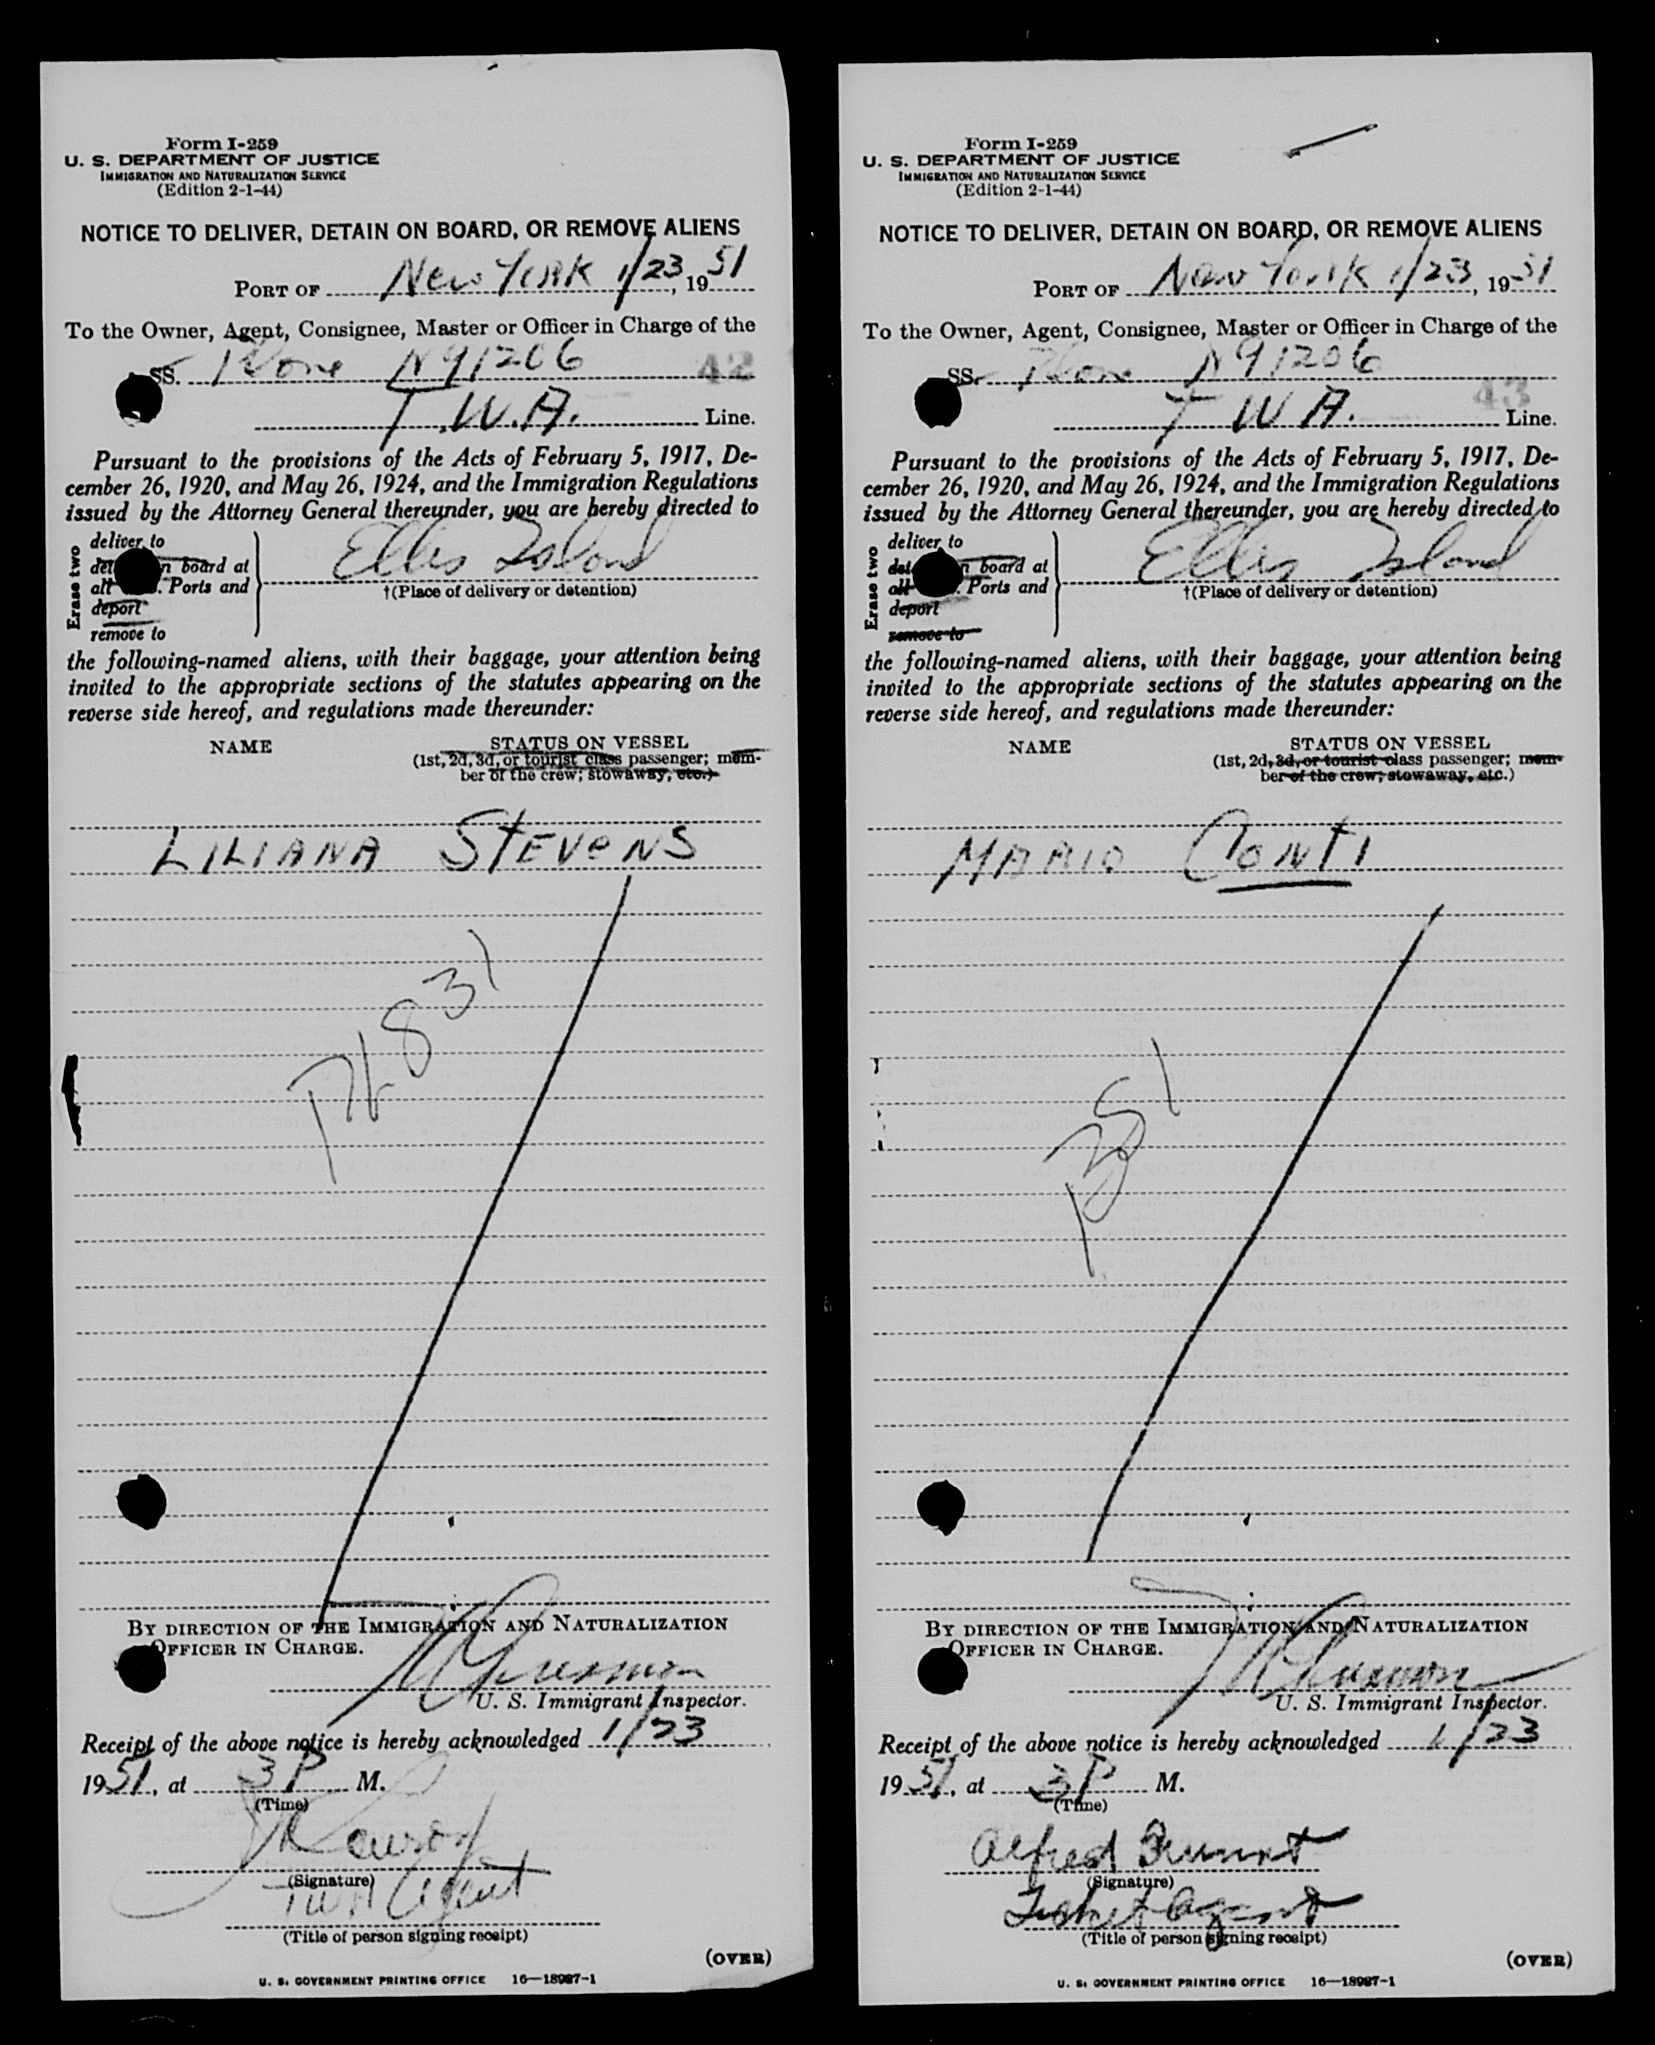 Form I-259
U. S. DEPARTMENT OF JUSTICE
IMMIGRATION AND NATURALIZATION SERVICE
(Edition 2-1-44)
NOTICE TO DELIVER, DETAIN ON BOARD, OR REMOVE ALIENS
PORT OF New York 1/23, 1951
To the Owner, Agent, Consignee, Master or Officer in Charge of the
SS. Plane N91206 42
T.W.A. Line.
Pursuant to the provisions of the Acts of February 5, 1917, De-
cember 26, 1920, and May 26, 1924, and the Immigration Regulations
issued by the Attorney General thereunder, you are hereby directed to
Erase two
deliver to
board at
all Ports and
deport
remove to
Ellis Island
†(Place of delivery or detention)
the following-named aliens, with their baggage, your attention being
invited to the appropriate sections of the statutes appearing on the
reverse side hereof, and regulations made thereunder:
NAME STATUS ON VESSEL
(1st, 2d, 3d, or tourist class passenger; mem-
ber of the crew; stowaway, etc.)
LILIANA STEVENS
BY DIRECTION OF THE IMMIGRATION AND NATURALIZATION
OFFICER IN CHARGE.
U. S. Immigrant Inspector.
Receipt of the above notice is hereby acknowledged 1/23
1951, at 3 P M.
(Time)
(Signature)
TWA Agent
(Title of person signing receipt)
(OVER)
U. S. GOVERNMENT PRINTING OFFICE 16—18987-1
Form I-259
U. S. DEPARTMENT OF JUSTICE
IMMIGRATION AND NATURALIZATION SERVICE
(Edition 2-1-44)
NOTICE TO DELIVER, DETAIN ON BOARD, OR REMOVE ALIENS
PORT OF New York 1/23, 1951
To the Owner, Agent, Consignee, Master or Officer in Charge of the
SS. Plane N91206 43
T W A. Line.
Pursuant to the provisions of the Acts of February 5, 1917, De-
cember 26, 1920, and May 26, 1924, and the Immigration Regulations
issued by the Attorney General thereunder, you are hereby directed to
Erase two
deliver to
board at
all Ports and
deport
remove to
Ellis Island
†(Place of delivery or detention)
the following-named aliens, with their baggage, your attention being
invited to the appropriate sections of the statutes appearing on the
reverse side hereof, and regulations made thereunder:
NAME STATUS ON VESSEL
(1st, 2d, 3d, or tourist class passenger; mem-
ber of the crew; stowaway, etc.)
MARIO CONTI
BY DIRECTION OF THE IMMIGRATION AND NATURALIZATION
OFFICER IN CHARGE.
U. S. Immigrant Inspector.
Receipt of the above notice is hereby acknowledged 1/23
1951, at 3 P M.
(Time)
Alfred
(Signature)
Ticket Agent
(Title of person signing receipt)
(OVER)
U. S. GOVERNMENT PRINTING OFFICE 16—18987-1